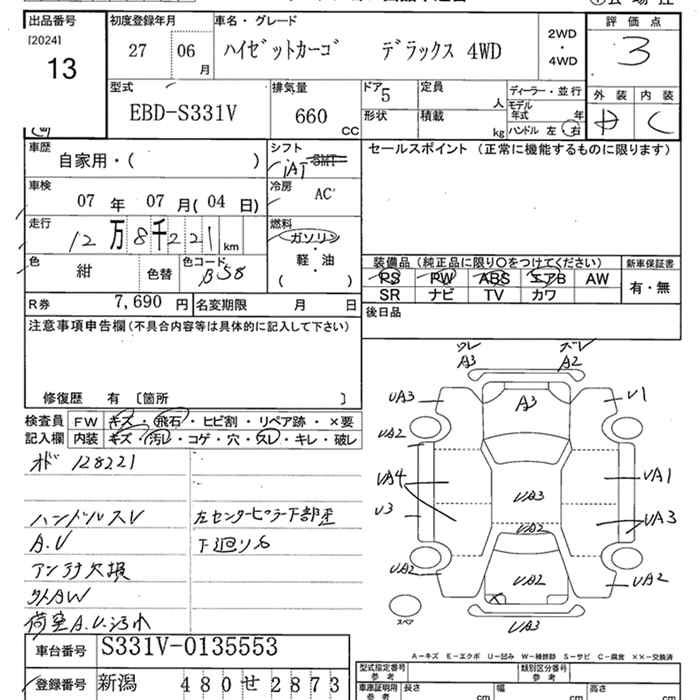 出品番号 初度登録年月 車名・グレード 評価点
[2024] 13
27 06月
ハイゼットカーゴ デラックス 4WD
2WD・4WD
3
型式 EBD-S331V
排気量 660 CC
ドア 5
形状
定員 人
積載 kg
ディーラー・並行
モデル年式 年
ハンドル 左 右
外装 内装
C
車歴 自家用・( )
シフト iAT SMT
セールスポイント (正常に機能するものに限ります)
車検 07年 07月(04日)
冷房 AC
走行 12万8千221km
燃料 ガソリン・軽・油 ( )
色 紺 色替 色コード B58
装備品(純正品に限り〇をつけてください) 新車保証書
PS PW ABS エアB AW 有・無
SR ナビ TV カワ
R券 7,690円 名変期限 月 日
後日品
注意事項申告欄(不具合内容等は具体的に記入して下さい)
修復歴 有 [箇所 ]
検査員記入欄 FW キズ・飛石・ヒビ割・リペア跡・×要
内装 キズ・汚レ・コゲ・穴・スレ・キレ・破レ
オド 128221
ハンドルスレ 左センターピラー下部歪
A.U 下廻りS
アンテナ欠損
外AW
荷室A.U.汚れ
ワレ A3
ズレ A2
UA3 A3 U1
UA2
UA4 UA3 UA1
U3 UA2 UA3
UA2 UA2 UA2
スペア UA3
A-キズ E-エクボ U-凹ミ W-補修跡 S-サビ C-腐食 ××-交換済
車台番号 S331V-0135553
登録番号 新潟 480 せ 2873
型式指定番号 参考 類別区分番号 参考
車庫証明用 参考 長さ cm 幅 cm 高さ cm